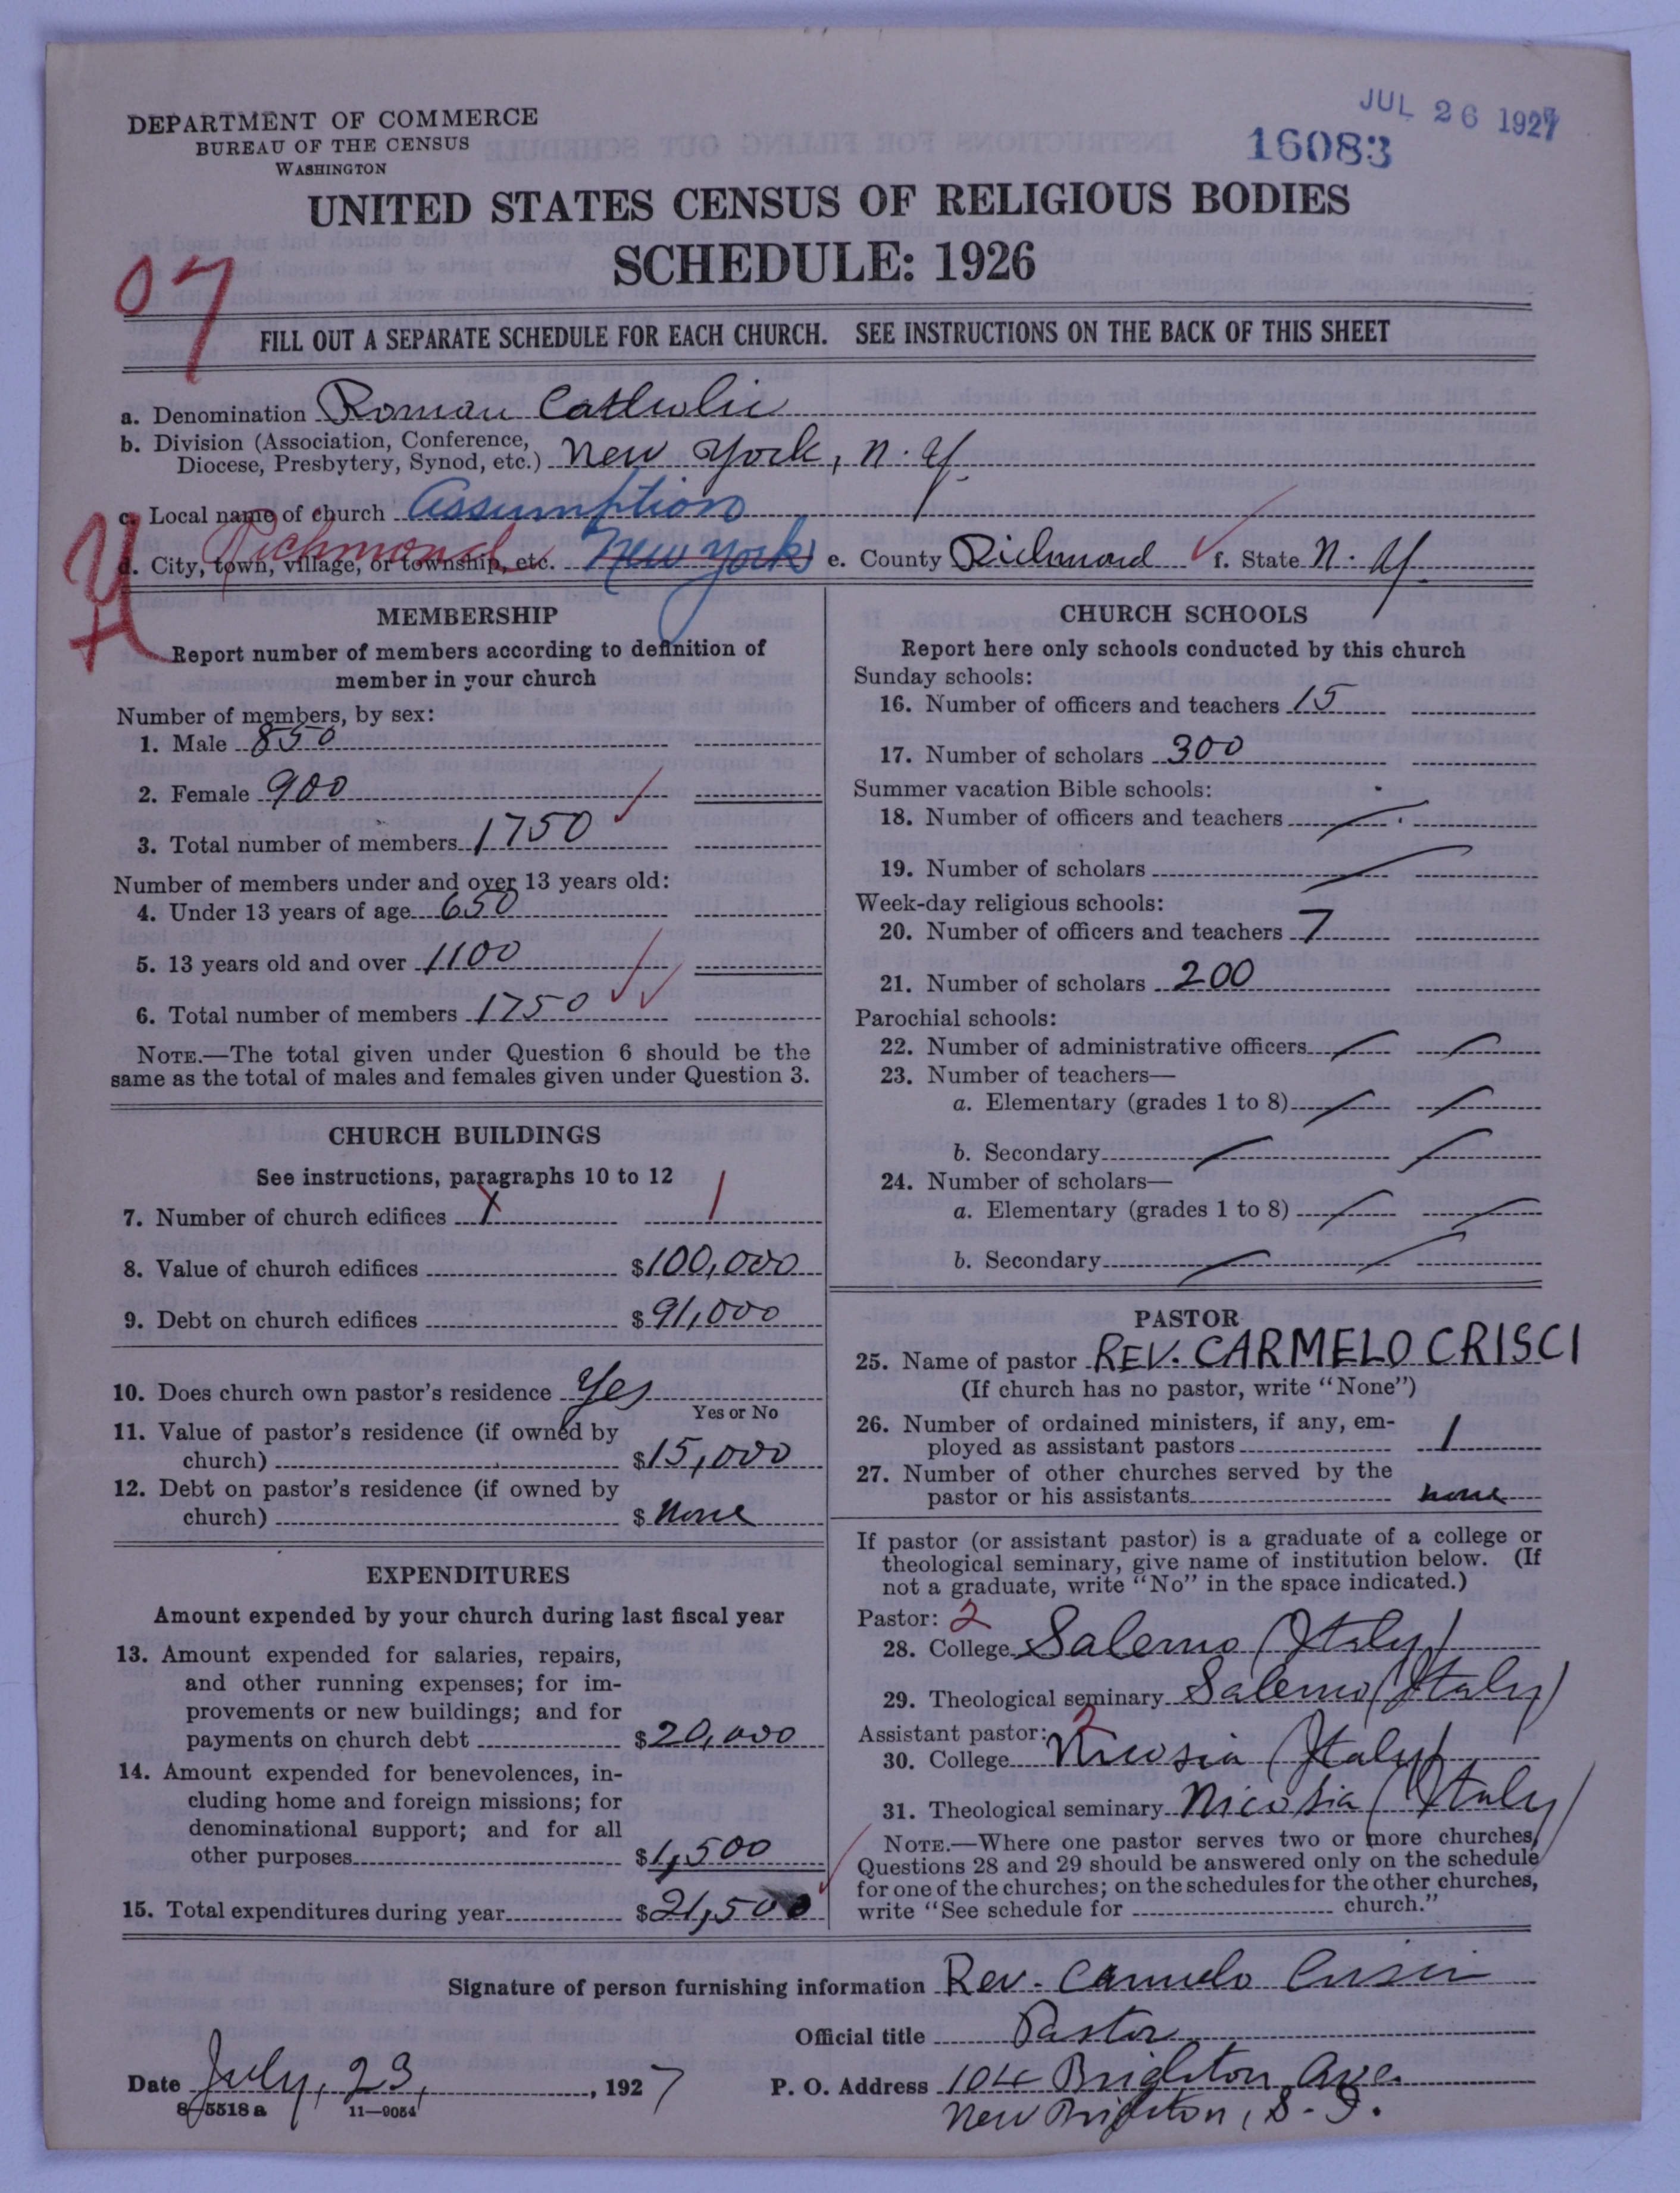 JUL 26 1927
16083
DEPARTMENT OF COMMERCE
BUREAU OF THE CENSUS
WASHINGTON
UNITED STATES CENSUS OF RELIGIOUS BODIES
SCHEDULE: 1926
07
FILL OUT A SEPARATE SCHEDULE FOR EACH CHURCH. SEE INSTRUCTIONS ON THE BACK OF THIS SHEET
a. Denomination Roman Catholic
b. Division (Association, Conference,
Diocese, Presbytery, Synod, etc.) New York, N.Y.
c. Local name of church Assumption
d. City, town, village, or township, etc. Richmond New York e. County Richmond f. State N.Y.
MEMBERSHIP
Report number of members according to definition of
member in your church
Number of members, by sex:
1. Male 850
2. Female 900
3. Total number of members 1750
Number of members under and over 13 years old:
4. Under 13 years of age 650
5. 13 years old and over 1100
6. Total number of members 1750
NOTE.—The total given under Question 6 should be the
same as the total of males and females given under Question 3.
CHURCH BUILDINGS
See instructions, paragraphs 10 to 12
7. Number of church edifices 1 1
8. Value of church edifices $100,000
9. Debt on church edifices $91,000
10. Does church own pastor's residence Yes
Yes or No
11. Value of pastor's residence (if owned by
church) $15,000
12. Debt on pastor's residence (if owned by
church) $ None
EXPENDITURES
Amount expended by your church during last fiscal year
13. Amount expended for salaries, repairs,
and other running expenses; for im-
provements or new buildings; and for
payments on church debt $20,000
14. Amount expended for benevolences, in-
cluding home and foreign missions; for
denominational support; and for all
other purposes $1,500
15. Total expenditures during year $21,500
CHURCH SCHOOLS
Report here only schools conducted by this church
Sunday schools:
16. Number of officers and teachers 15
17. Number of scholars 300
Summer vacation Bible schools:
18. Number of officers and teachers
19. Number of scholars
Week-day religious schools:
20. Number of officers and teachers 7
21. Number of scholars 200
Parochial schools:
22. Number of administrative officers
23. Number of teachers—
a. Elementary (grades 1 to 8)
b. Secondary
24. Number of scholars—
a. Elementary (grades 1 to 8)
b. Secondary
PASTOR
25. Name of pastor REV. CARMELO CRISCI
(If church has no pastor, write "None")
26. Number of ordained ministers, if any, em-
ployed as assistant pastors 1
27. Number of other churches served by the
pastor or his assistants none
If pastor (or assistant pastor) is a graduate of a college or
theological seminary, give name of institution below. (If
not a graduate, write "No" in the space indicated.)
Pastor: 2
28. College Salerno (Italy)
29. Theological seminary Salerno (Italy)
Assistant pastor: 2
30. College Nicosia (Italy)
31. Theological seminary Nicosia (Italy)
NOTE.—Where one pastor serves two or more churches,
Questions 28 and 29 should be answered only on the schedule
for one of the churches; on the schedules for the other churches,
write "See schedule for church."
Signature of person furnishing information Rev. Carmelo Crisci
Official title Pastor
Date July, 23, 1927
P. O. Address 104 Brighton Ave.
New Brighton, S. I.
8—5518a 11—9054